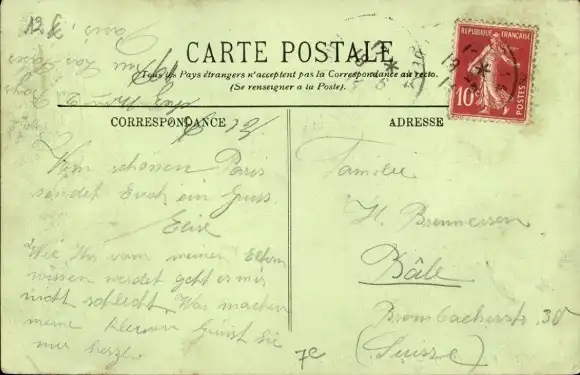 12 fc
CARTE POSTALE
Tous les Pays étrangers n'acceptent pas la Correspondance au recto.
(Se renseigner a la Poste).
REPUBLIQUE FRANÇAISE
10c
POSTES
CORRESPONDANCE
ADRESSE
Vom schönen Paris
sendet Euch ein Gruss
Elise
Wie Ihr von meinen Eltern
wissen werdet geht es mir
nicht schlecht. Was machen
meine kleinen Grüsst Sie
mir herzl.
Familie
H. Brenneisen
Bâle
Brombacherstr. 30
(Suisse)
7e
Paris,
rue